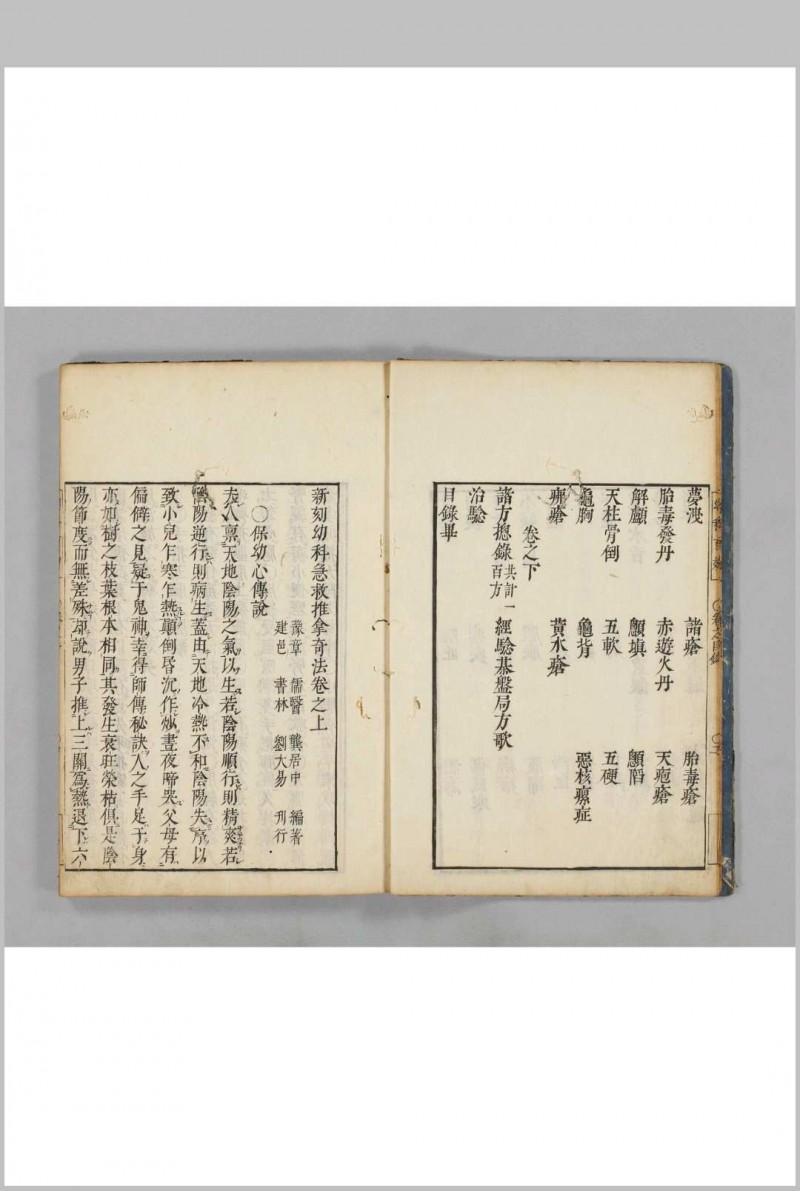 夢洩 諸瘡 胎毒瘡
胎毒發丹 赤遊火丹 天疱瘡
解顱 顖填 顖陷
天柱骨倒 五軟 五硬
龜胸 龜背 惡核瘰症
痱瘡 黃水瘡
卷之下
諸方摠錄共計一百方 經驗基盤局方歌
治驗
目錄畢
新刻幼科急救推拿奇法卷之上
豫章 儒醫 龔居中 編著
建邑 書林 劉大易 刊行
〇保幼心傳說
夫人禀天地陰陽之氣以生若陰陽順行則精爽若
陰陽逆行則病生蓋由天地冷熱不和陰陽失序以
致小兒乍寒乍熱顛倒昏沉作㷇晝夜啼哭父母有
偏僻之見疑于鬼神幸得師傳秘訣人之手足于身
亦如樹之枝葉根本相同其發生衰旺榮枯俱是陰
陽節度而無差殊却說男子推上三關為熱退下六